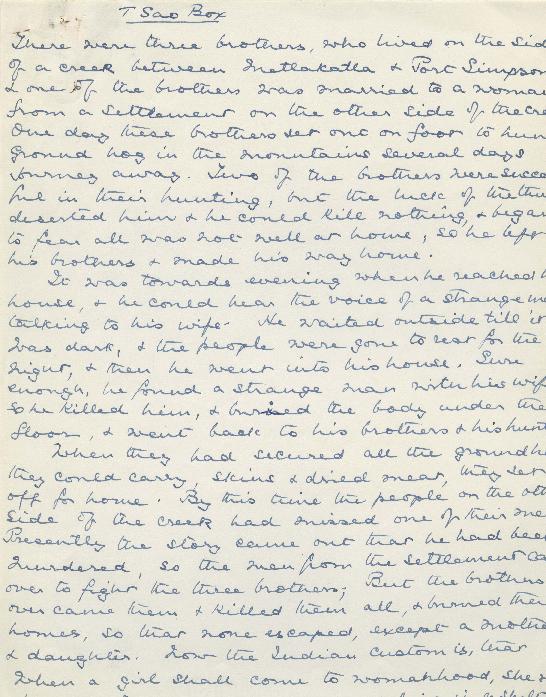 T Sao Box
There were three brothers, who lived on the sid
of a creek between Metlakatla & Port Simpson
& one of the brothers was married to a woma
from a settlement on the other side of the cre
One day these brothers set out on foot to hun
ground hog in the mountains several days
journey away. Two of the brothers were succe
ful in their hunting, but the luck of the thi
deserted him & he could kill nothing, & began
to fear all was not well at home, so he left
his brothers & made his way home.
It was towards evening when he reached h
house, & he could hear the voice of a strange m
talking to his wife. He waited outside till it
was dark, & the people were gone to rest for the
night, & then he went into his house. Sure
enough, he found a strange man with his wif
so he killed him, & buried the body under the
floor, & went back to his brothers & his hunt
When they had secured all the groundh
they could carry, skins & dried meat, they set
off for home. By this time the people on the oth
side of the creek had missed one of their me
Presently the story came out that he had bee
murdered, so the men from the settlement ca
over to fight the three brothers; But the brothers
over came them & killed them all, & burned thei
homes, so that none escaped, except a mothe
& daughter. Now the Indian custom is, that
when a girl shall come to womanhood, she